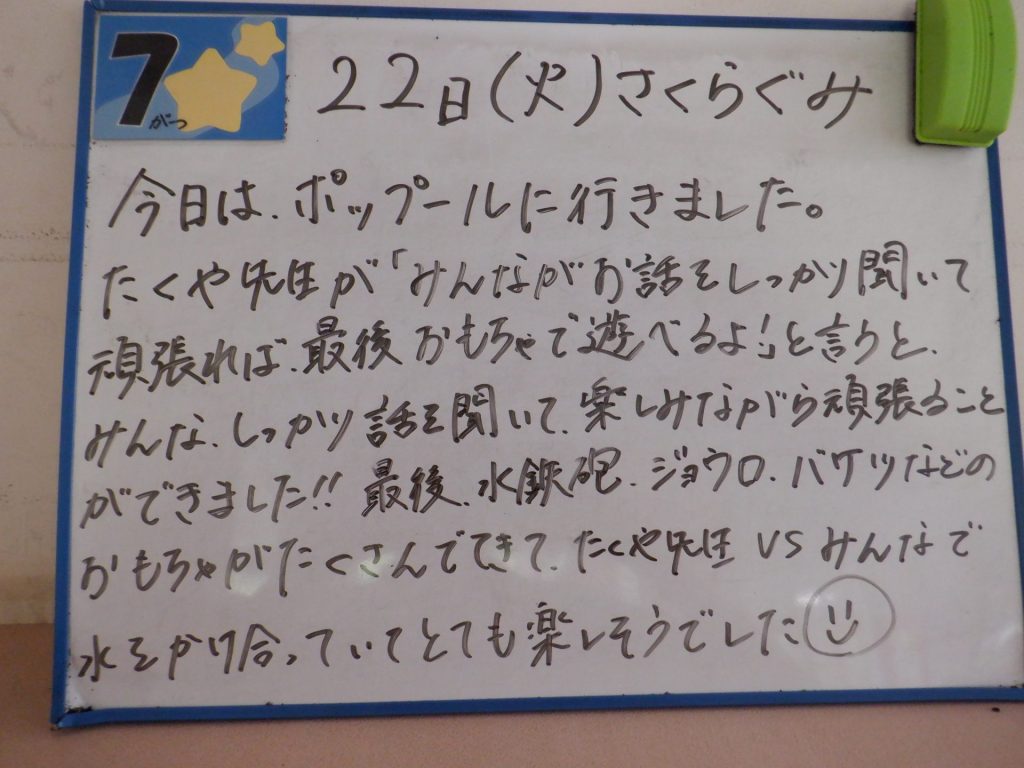 7がつ 22日(火)さくらぐみ
今日は、ポップールに行きました。
たくや先生が「みんながお話をしっかり聞いて
頑張れば、最後おもちゃで遊べるよ!」と言うと、
みんな、しっかり話を聞いて、楽しみながら頑張ること
ができました!! 最後、水鉄砲、ジョウロ、バケツなどの
おもちゃがたくさんでてきて、たくや先生 VS みんなで
水をかけ合っていてとても楽しそうでした